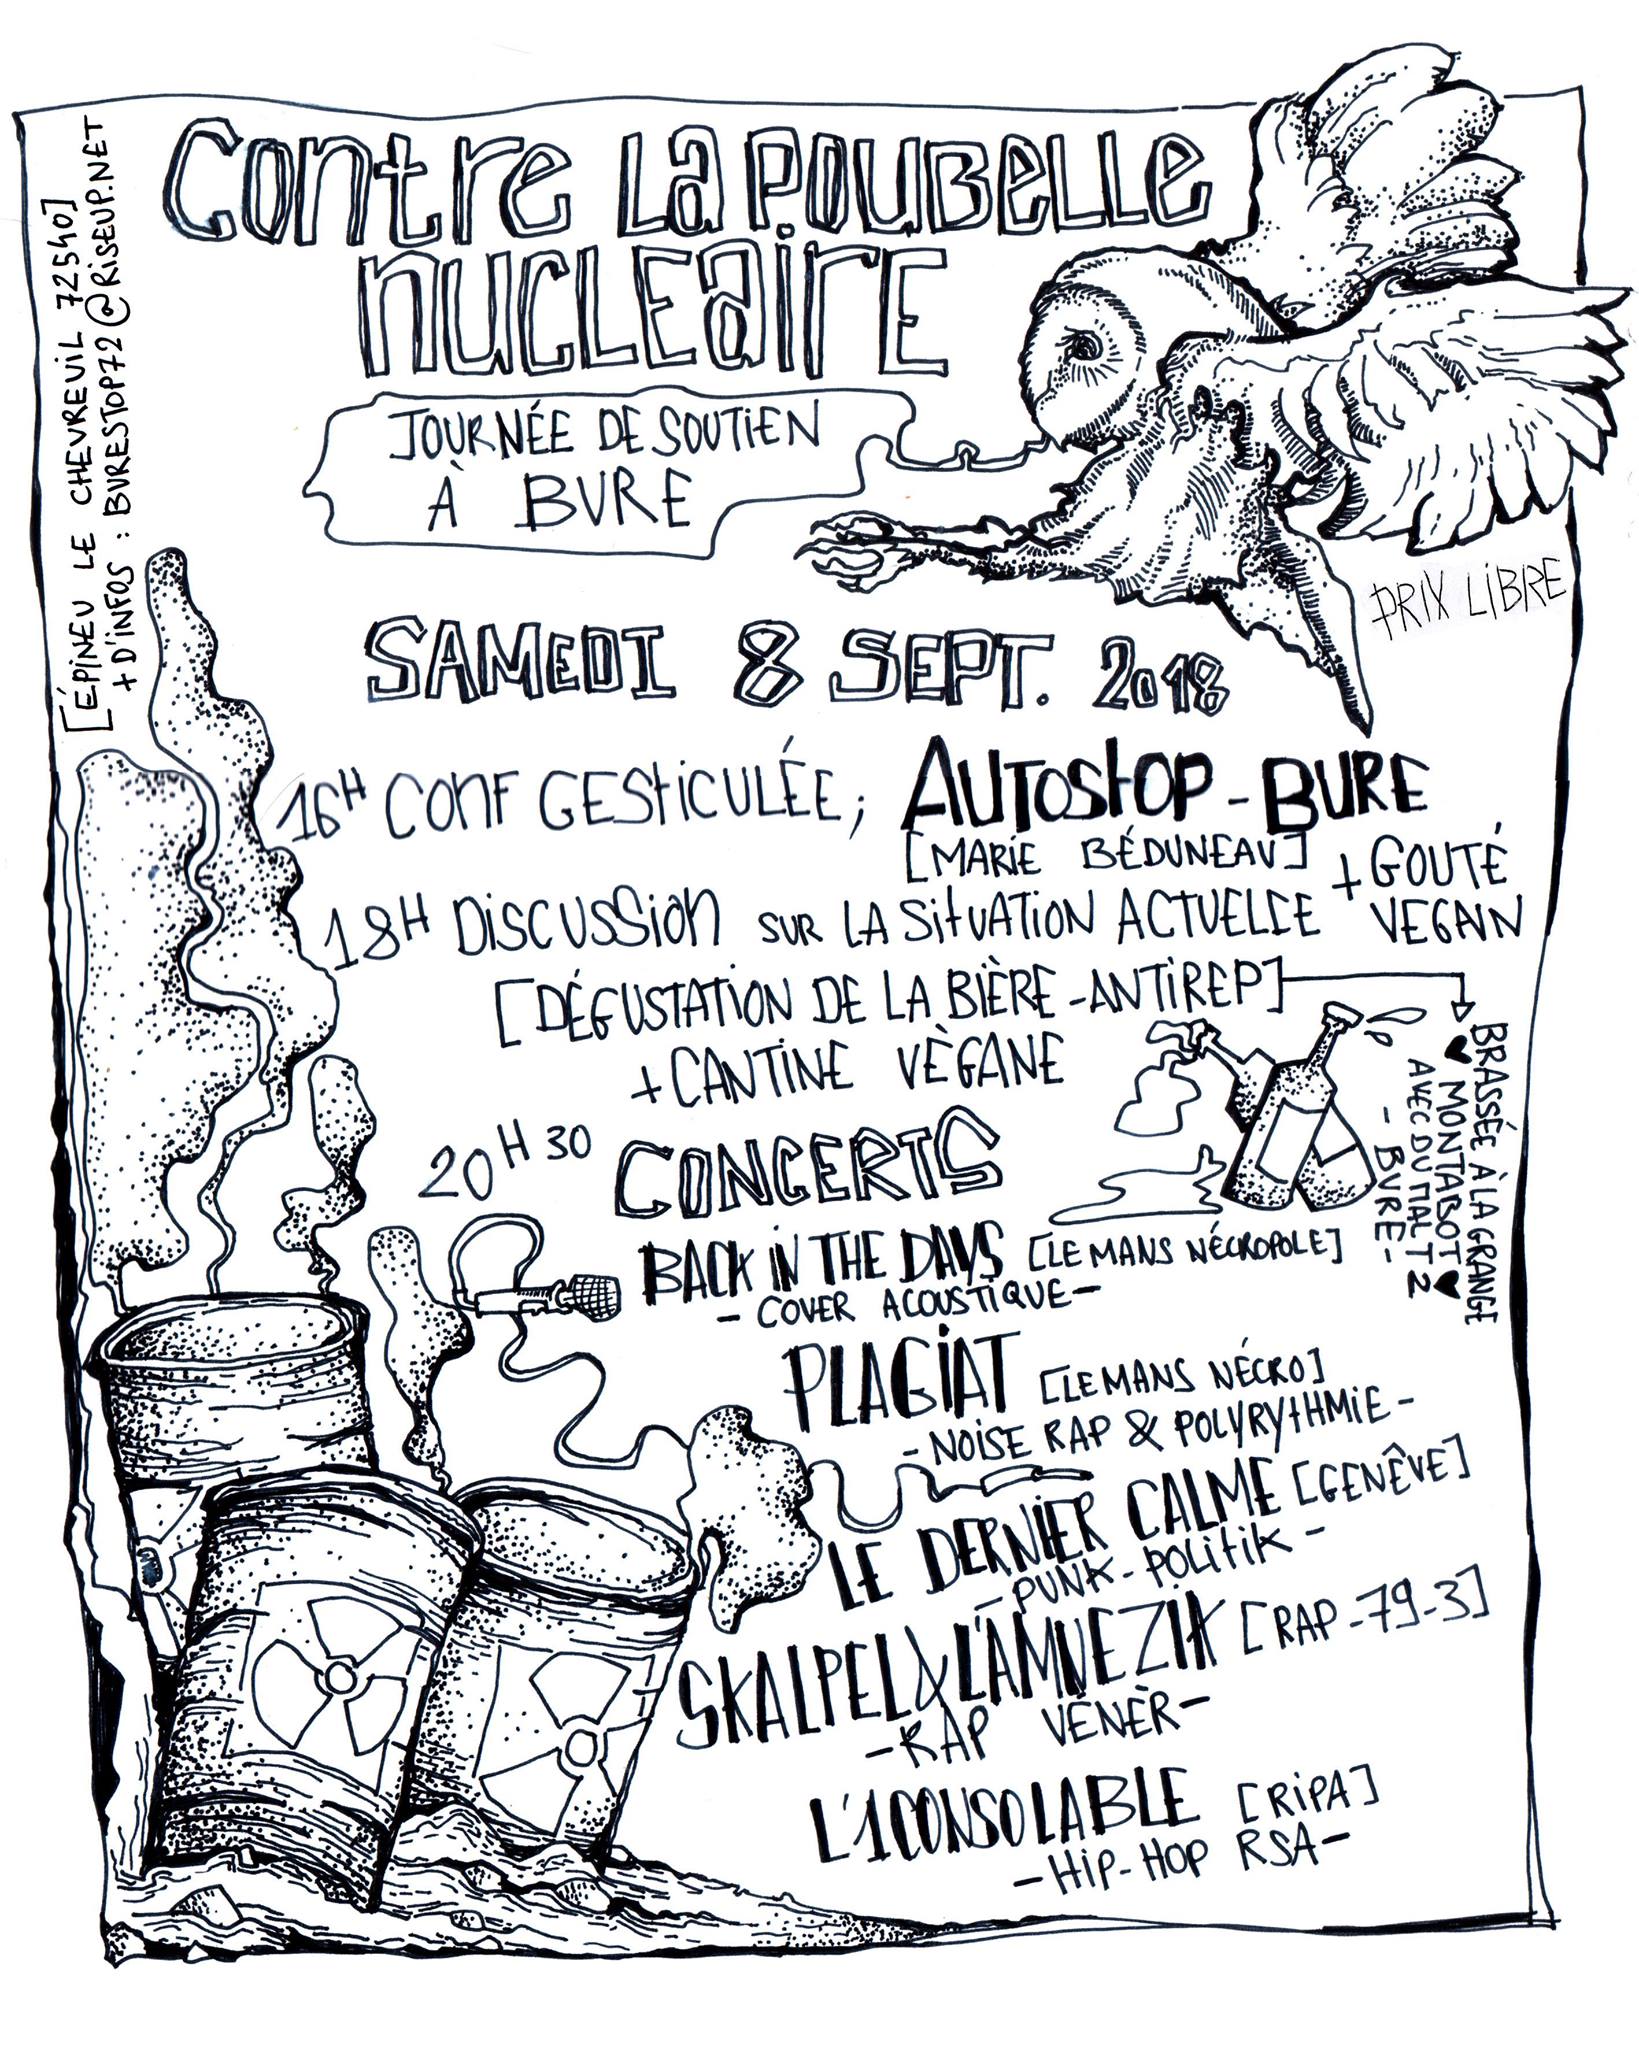 Contre La Poubelle
nucleaire
[ÉPINEU LE CHEVREUIL 72540]
+ D'INFOS : BURESTOP72@RISEUP.NET
JOURNÉE DE SOUTIEN
À BURE
PRIX LIBRE
SAMEDI 8 SEPT. 2018
16H CONF GESTICULÉE; AUTOSTOP - BURE
[MARIE BÉDUNEAU]
+ GOUTÉ
VEGAN
18H DISCUSSION SUR LA SITUATION ACTUELLE
[DÉGUSTATION DE LA BIÈRE - ANTIREP]
+ CANTINE VÈGANE
BRASSÉE À LA GRANGE
♥ MONTABOT ♥
AVEC DU MALT 2
- BURE -
20H30 CONCERTS
BACK IN THE DAYS [LE MANS NÉCROPOLE]
- COVER ACOUSTIQUE -
PLAGIAT [LE MANS NÉCRO]
- NOISE RAP & POLYRYTHMIE -
LE DERNIER CALME [GENÊVE]
- PUNK - POLITIK -
SKALPEL & L'AMNEZIK [RAP - 79 - 3]
- RAP VÉNÈR -
L'1CONSOLABLE [RIPA]
- HIP-HOP RSA -